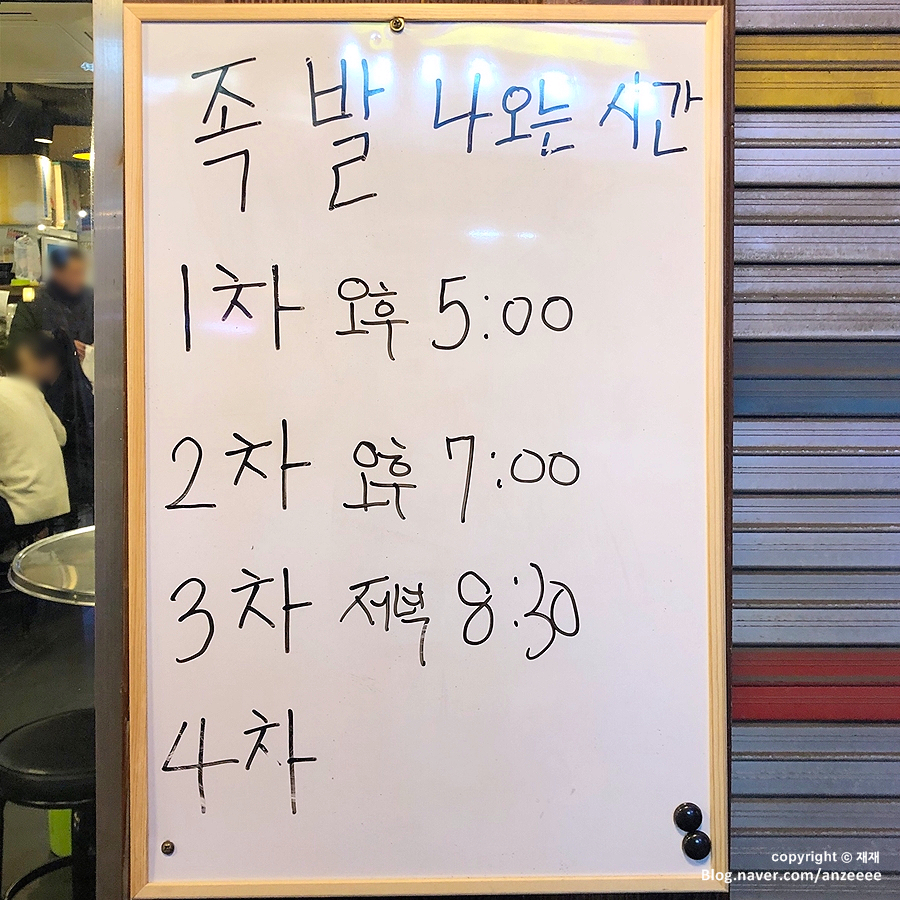 족 발 나오는 시간
1차 오후 5:00
2차 오후 7:00
3차 저녁 8:30
4차
copyright © 재재
Blog.naver.com/anzeeee